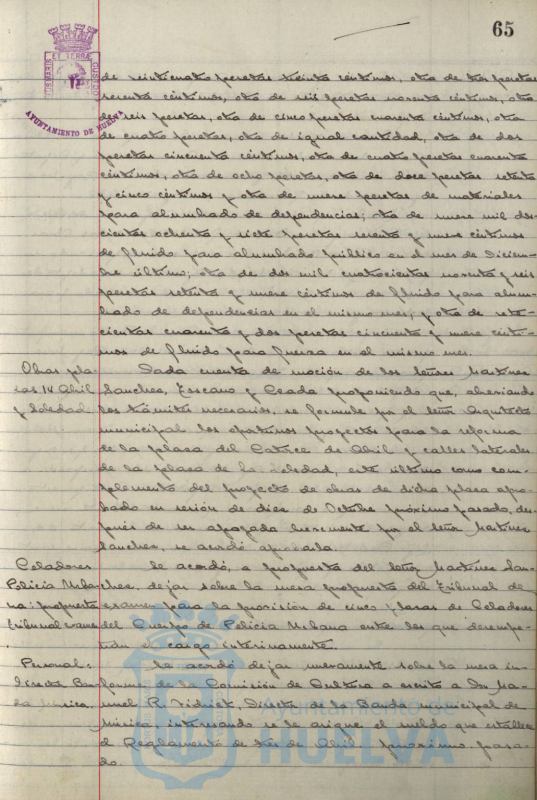 65
ET TERRÆ
CUSTODIA
AYUNTAMIENTO DE HUELVA
de veinticuatro pesetas treinta céntimos, otra de tres pesetas
céntimos, otra de seis pesetas noventa céntimos, otra
de seis pesetas, otra de cinco pesetas cuarenta céntimos, otra
de cuatro pesetas, otra de igual cantidad, otra de dos
pesetas cincuenta céntimos, otra de cuatro pesetas cuarenta
céntimos, otra de ocho pesetas, otra de doce pesetas setenta
y cinco céntimos y otra de nueve pesetas de materiales
para alumbrado de dependencias; otra de nueve mil dos-
cientas ochenta y siete pesetas sesenta y nueve céntimos
de fluido para alumbrado público en el mes de Diciem-
bre último; otra de dos mil cuatrocientas noventa y seis
pesetas setenta y nueve céntimos de fluido para alum-
brado de dependencias en el mismo mes; y otra de sete-
cientas cuarenta y dos pesetas cincuenta y nueve cénti-
mos de fluido para fuerza en el mismo mes.
Obras pla-
zas 14 Abril
y Soledad.
Dada cuenta de moción de los Señores Martínez
Sanchez, Tescano y Ceada proponiendo que, abreviando
los trámites necesarios, se formule por el Señor Arquitecto
municipal los oportunos proyectos para la reforma
de la plaza del Catorce de Abril y calles laterales
de la plaza de la Soledad, este último como com-
plemento del proyecto de obras de dicha plaza apro-
bado en sesión de diez de Octubre próximo pasado, des-
pués de ser apoyada brevemente por el Señor Martínez
Sanchez, se acordó aprobarla.
Celadores
Policía Urba-
na: propuesta
tribunal examen
.
Se acordó, a propuesta del Señor Martínez San-
chez, dejar sobre la mesa propuesta del Tribunal de
examen para la provisión de cinco plazas de Celadores
del Cuerpo de Policía Urbana entre los que desempe-
ñan el cargo interinamente.
Personal:
Director Ban-
da Música.
Se acordó dejar nuevamente sobre la mesa in-
forme de la Comisión de Cultura a escrito de Don Ma-
nuel R. Director de la Banda municipal de
Música, interesando se le asigne el sueldo que establece
el Reglamento de tres de Abril próximo pasa-
do.
Ayuntamiento de
HUELVA